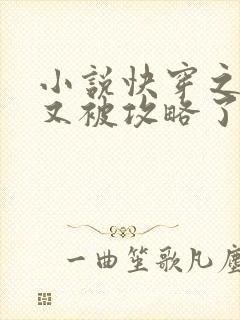 小説快穿之
又被攻略了
一曲笙歌凡塵